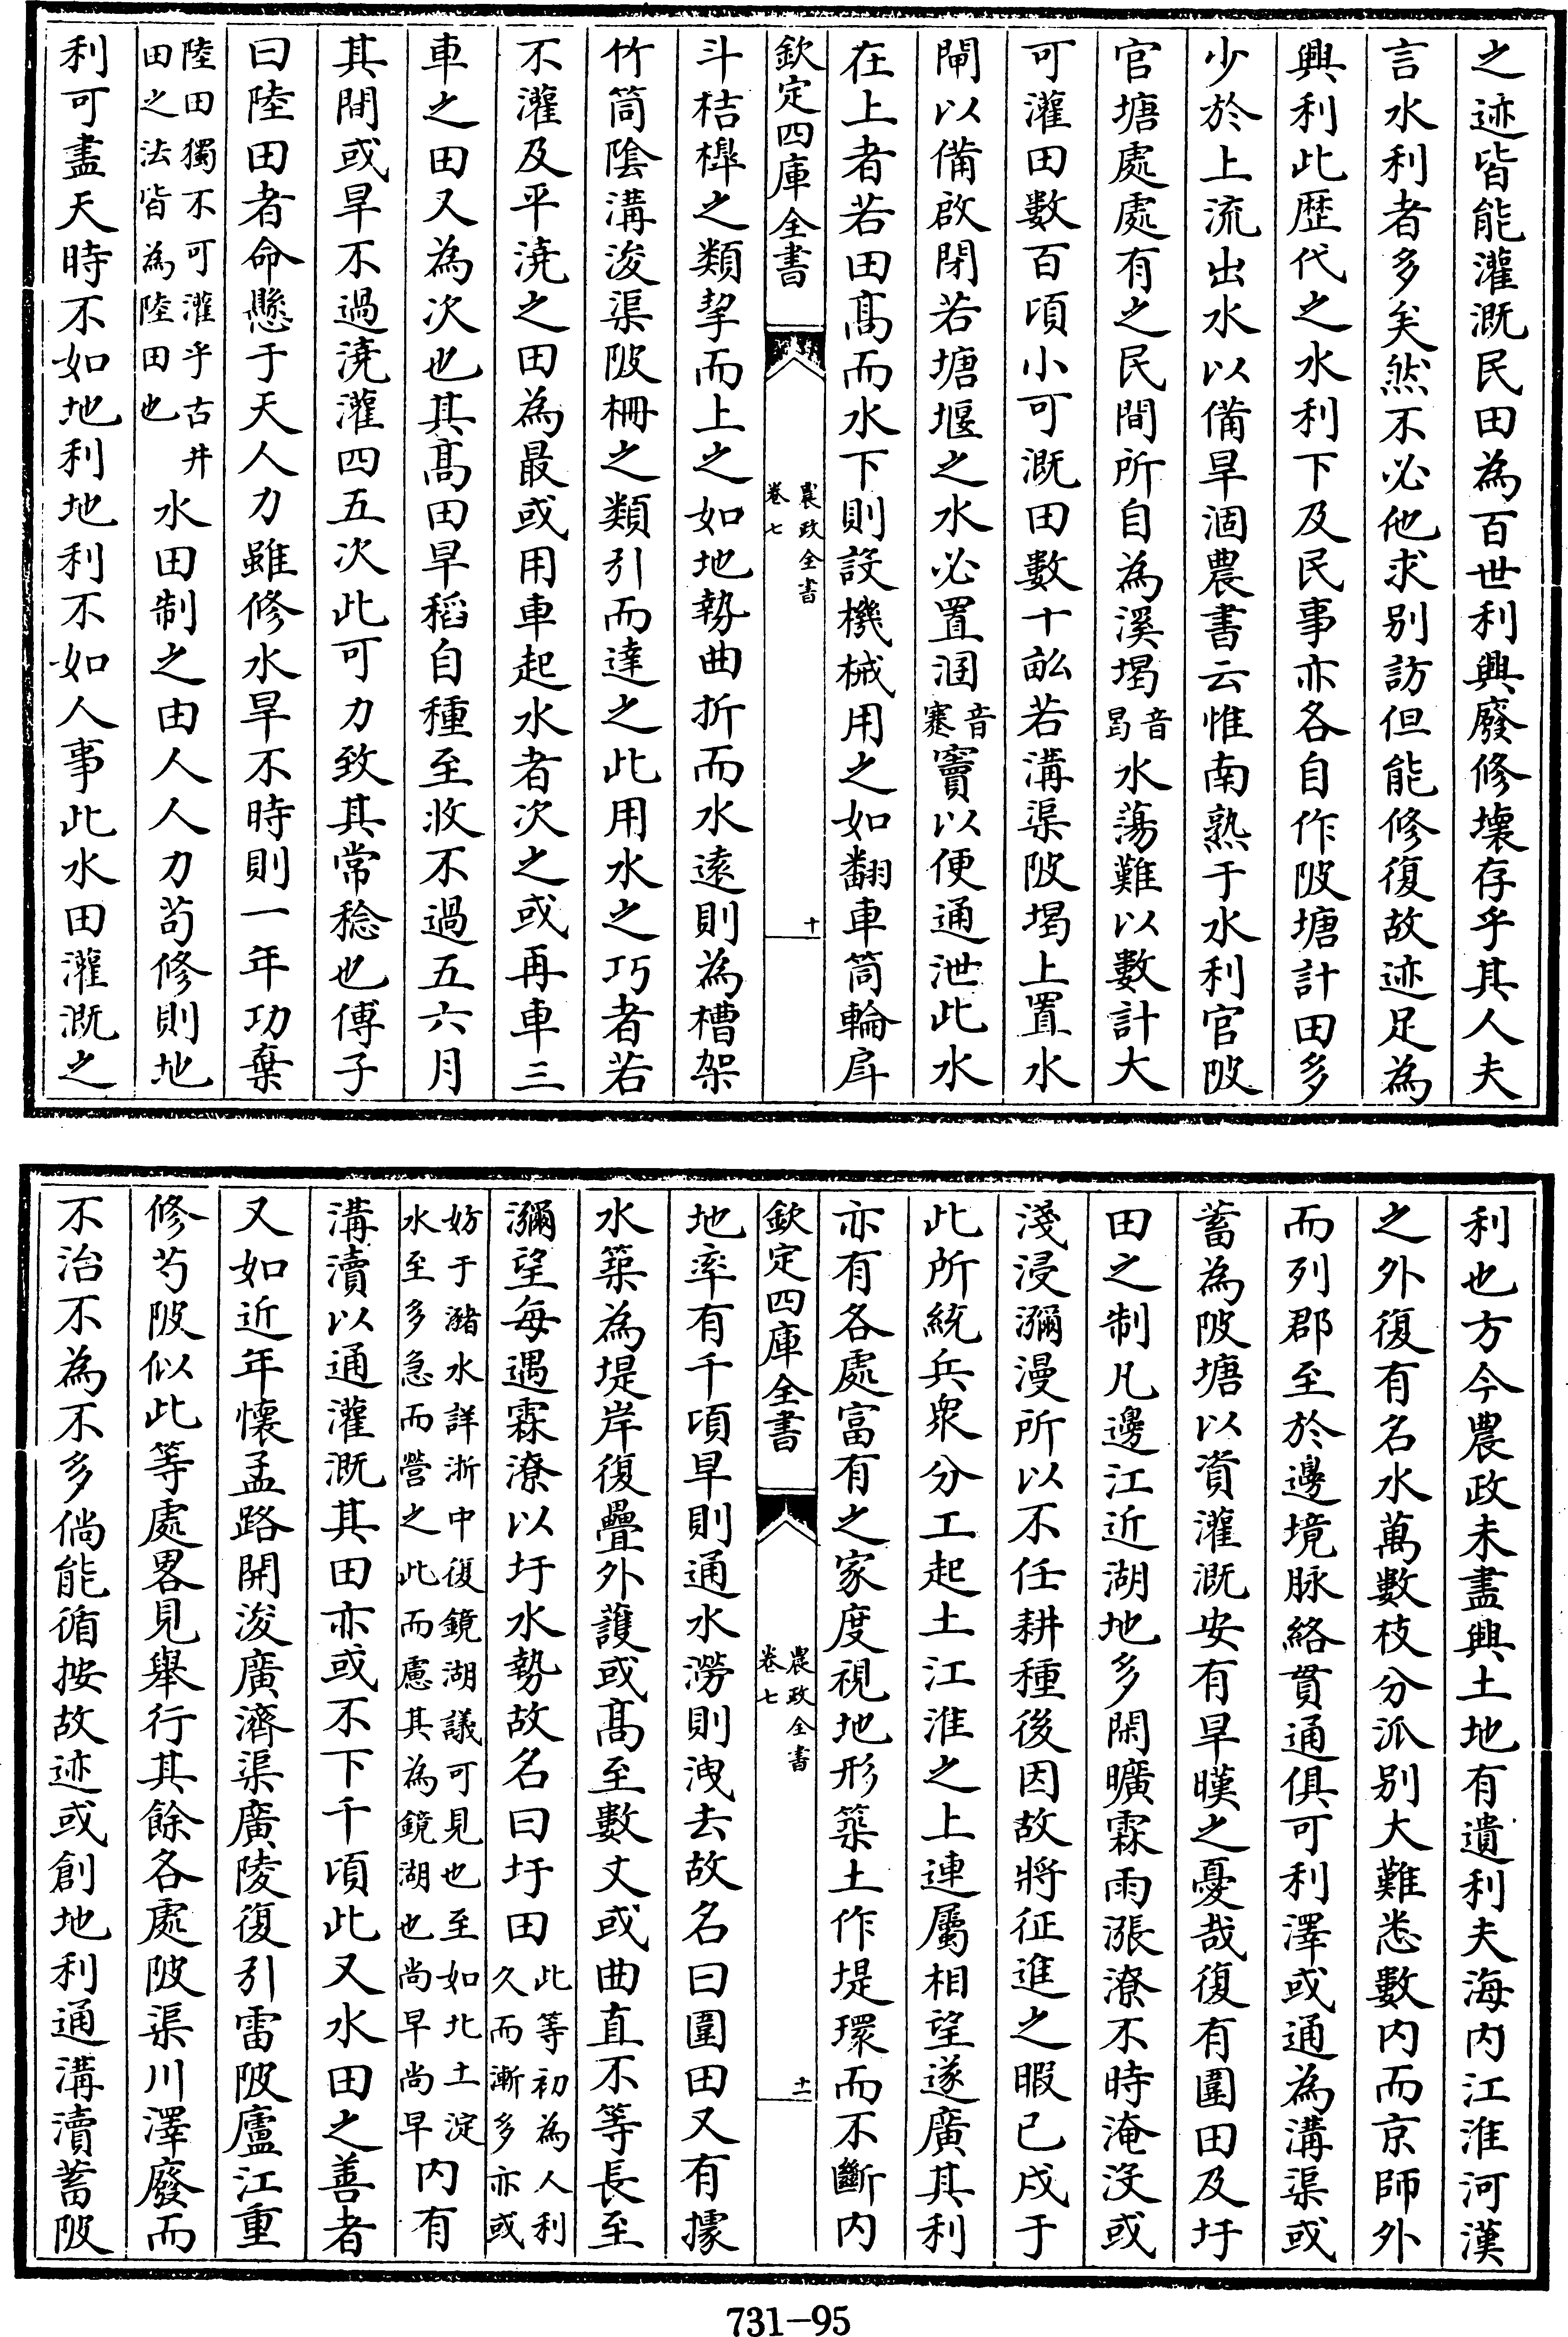 之迹皆能灌溉民田為百世利興廢修壞存乎其人夫
言水利者多矣然不必他求别訪但能修復故迹足為
興利此歴代之水利下及民事亦各自作陂塘計田多
少於上流出水以備旱涸農書云惟南熟于水利官陂
官塘處處有之民間所自為溪堨音曷水蕩難以數計大
可灌田數百頃小可溉田數十畝若溝渠陂堨上置水
閘以備啟閉若塘堰之水必置涵音蹇竇以便通泄此水
在上者若田髙而水下則設機械用之如翻車筒輪戽
欽定四庫全書
農政全書
卷七
十
斗桔槹之類挈而上之如地勢曲折而水逺則為槽架
竹筒陰溝浚渠陂栅之類引而達之此用水之巧者若
不灌及平澆之田為最或用車起水者次之或再車三
車之田又為次也其髙田早稻自種至收不過五六月
其間或旱不過澆灌四五次此可力致其常稔也傅子
曰陸田者命懸于天人力雖修水旱不時則一年功棄
陸田獨不可灌乎古井
田之法皆為陸田也
水田制之由人人力茍修則地
利可盡天時不如地利地利不如人事此水田灌溉之
利也方今農政未盡興土地有遺利夫海内江淮河漢
之外復有名水萬數枝分派别大難悉數内而京師外
而列郡至於邊境脉絡貫通俱可利澤或通為溝渠或
蓄為陂塘以資灌溉安有旱暵之憂哉復有圍田及圩
田之制凡邊江近湖地多閑曠霖雨漲潦不時淹沒或
淺浸瀰漫所以不任耕種後因故將征進之暇已戍于
此所統兵衆分工起土江淮之上連屬相望遂廣其利
亦有各處富有之家度視地形築土作堤環而不斷内
欽定四庫全書
農政全書
卷七
十一
地率有千頃旱則通水澇則洩去故名曰圍田又有據
水築為堤岸復疊外護或髙至數丈或曲直不等長至
瀰望每遇霖潦以圩水勢故名曰圩田
此等初為人利
久而漸多亦或
妨于瀦水詳浙中復鏡湖議可見也至如北土淀
水至多急而營之此而慮其為鏡湖也尚早尚早
内有
溝瀆以通灌溉其田亦或不下千頃此又水田之善者
又如近年懐孟路開浚廣濟渠廣陵復引雷陂廬江重
修芍陂似此等處畧見舉行其餘各處陂渠川澤廢而
不治不為不多倘能循按故迹或創地利通溝瀆蓄陂
731-95